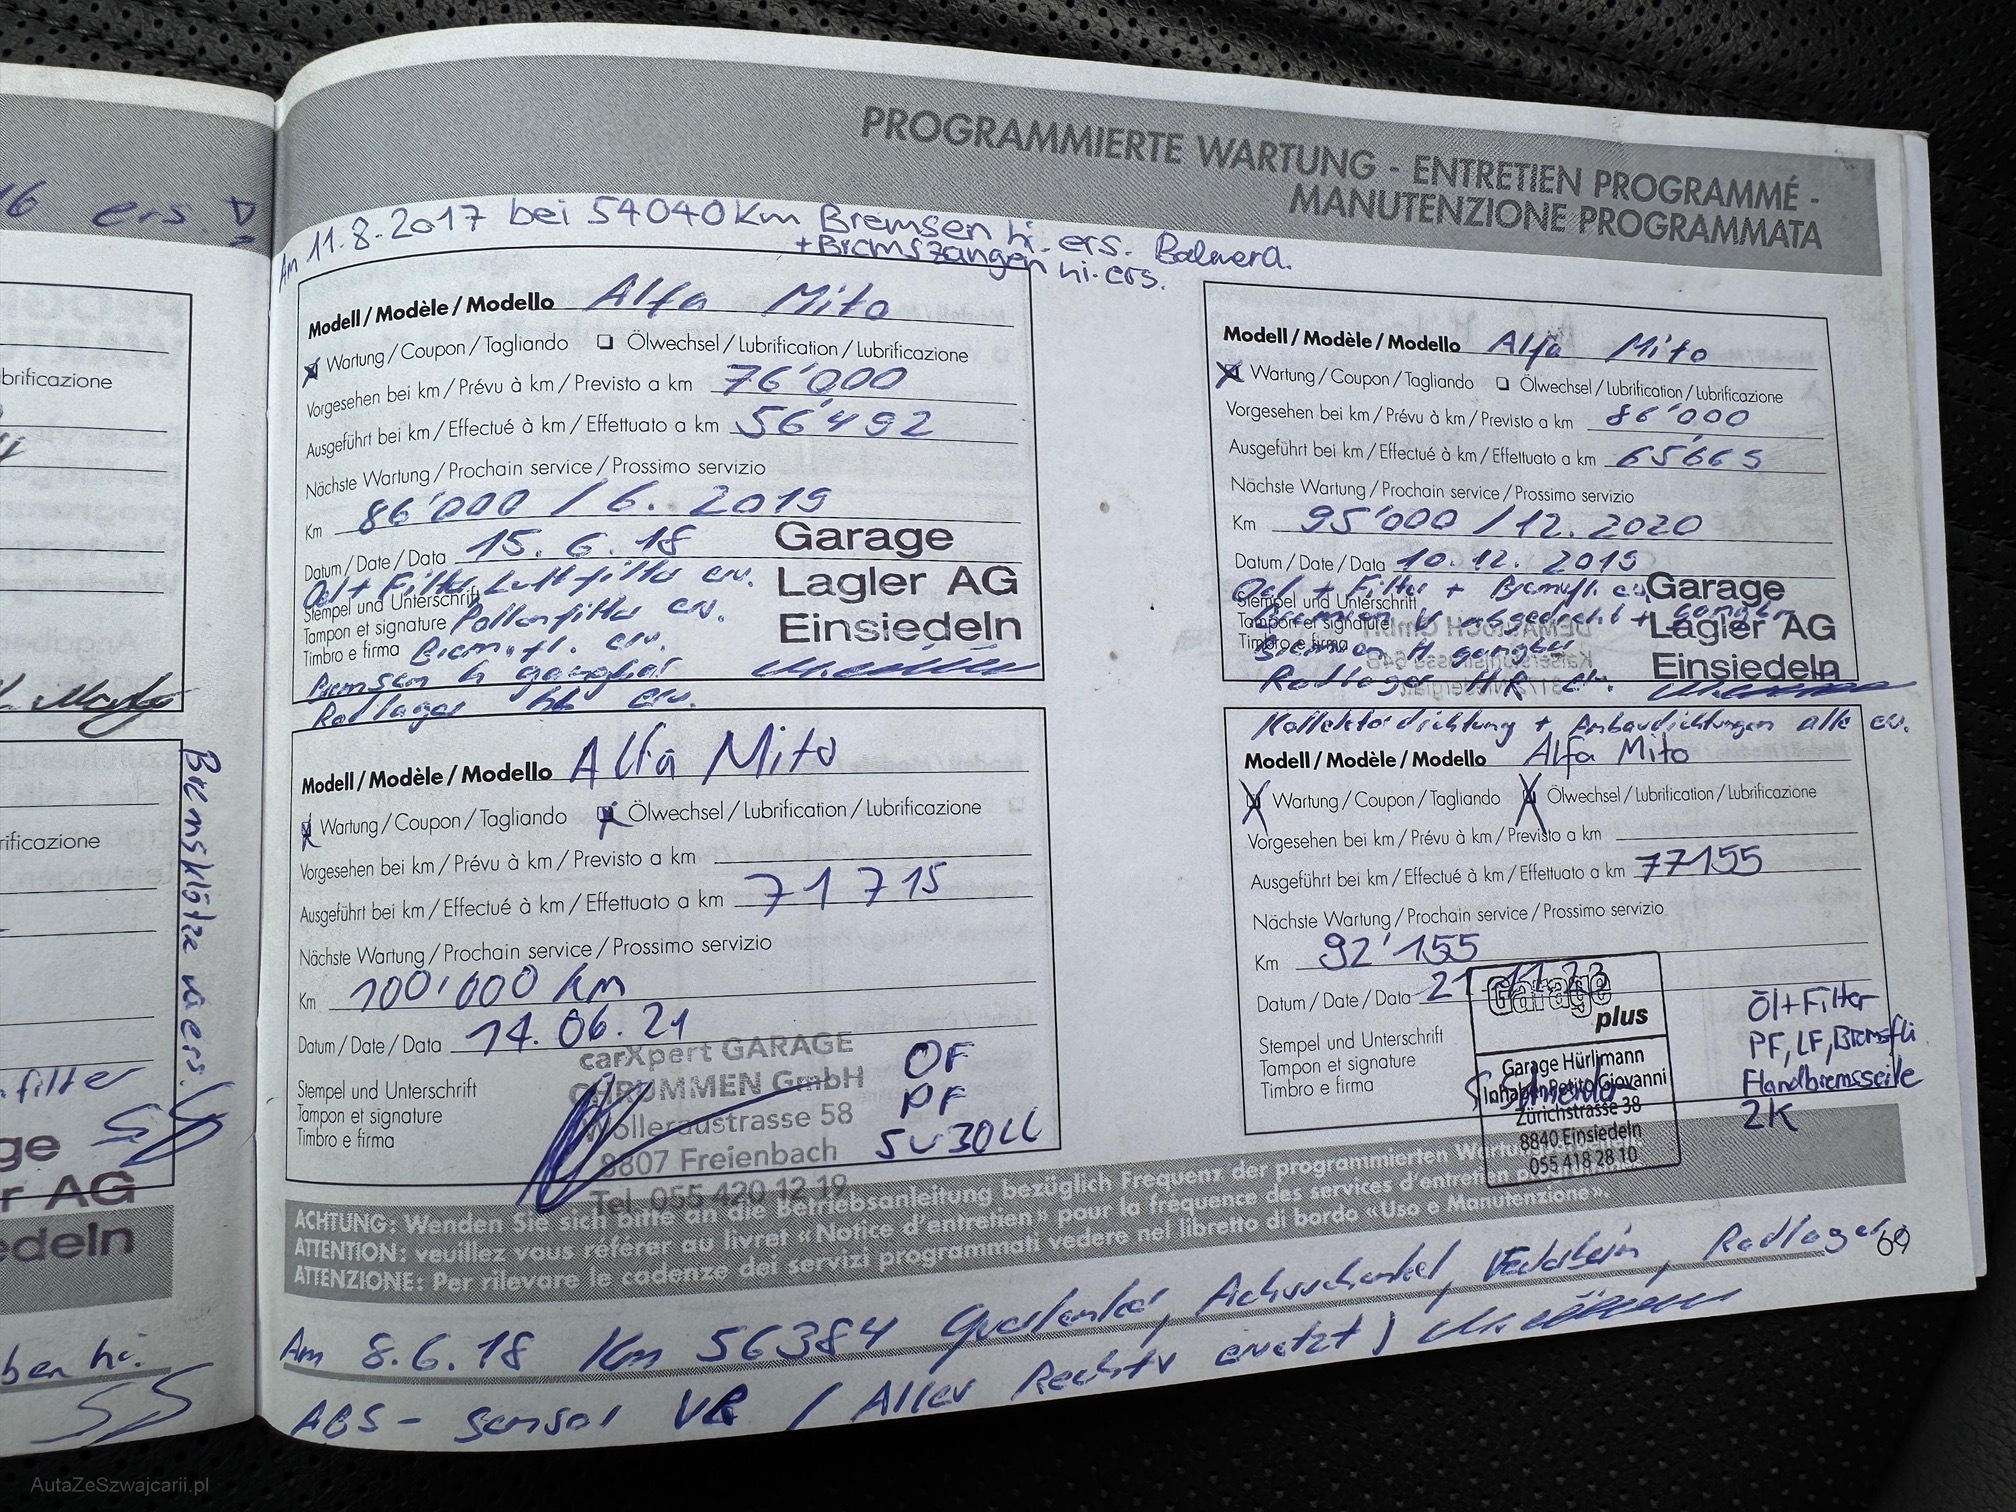 16 ers.
brificazione
rificazione
Bremsklötze
filter
ge
r AG
edeln
hi.
PROGRAMMIERTE WARTUNG - ENTRETIEN PROGRAMMÉ -
MANUTENZIONE PROGRAMMATA
Am 11.8.2017 bei 54040 Km Bremsen hi. ers.
+ Bremszangen hi. ers.
Modell / Modèle / Modello Alfa Mito
Wartung / Coupon / Tagliando Ölwechsel / Lubrification / Lubrificazione
Vorgesehen bei km / Prévu à km / Previsto a km 76'000
Ausgeführt bei km / Effectué à km / Effettuato a km 56'492
Nächste Wartung / Prochain service / Prossimo servizio
Km 86'000 / 6. 2019
Datum / Date / Data 15. 6. 18
Oel + Filter Luftfilter ern.
Stempel und Unterschrift
Tampon et signature Pollenfilter ern.
Timbro e firma Bremsfl. ern.
Bremsen h gangbar
Radlager ern.
Garage
Lagler AG
Einsiedeln
Modell / Modèle / Modello Alfa Mito
Wartung / Coupon / Tagliando Ölwechsel / Lubrification / Lubrificazione
Vorgesehen bei km / Prévu à km / Previsto a km
Ausgeführt bei km / Effectué à km / Effettuato a km 71 715
Nächste Wartung / Prochain service / Prossimo servizio
Km 100'000 km
Datum / Date / Data 14. 06. 21
Stempel und Unterschrift
Tampon et signature
Timbro e firma
carXpert GARAGE
CHRUMMEN GmbH
Wolleraustrasse 58
8807 Freienbach
Tel. 055 420 12 19
ÖF
PF
5W30LL
Modell / Modèle / Modello Alfa Mito
Wartung / Coupon / Tagliando Ölwechsel / Lubrification / Lubrificazione
Vorgesehen bei km / Prévu à km / Previsto a km 86'000
Ausgeführt bei km / Effectué à km / Effettuato a km 65'669
Nächste Wartung / Prochain service / Prossimo servizio
Km 95'000 / 12. 2020
Datum / Date / Data 10. 12. 2019
Oel + Filter + Bremsfl.
Stempel und Unterschrift
Tampon et signature
Timbro e firma
Bremsen V abgedreht + gangbar
Bremsen H gangbar
Radlager H.R
Garage
Lagler AG
Einsiedeln
Kollektordichtung + Anbaudichtungen alle ern.
Modell / Modèle / Modello Alfa Mito
Wartung / Coupon / Tagliando Ölwechsel / Lubrification / Lubrificazione
Vorgesehen bei km / Prévu à km / Previsto a km
Ausgeführt bei km / Effectué à km / Effettuato a km 77155
Nächste Wartung / Prochain service / Prossimo servizio
Km 92'155
Datum / Date / Data 21.11.23
Stempel und Unterschrift
Tampon et signature
Timbro e firma
Garage
plus
Garage Hürlimann
Inhaber Petito Giovanni
Zürichstrasse 38
8840 Einsiedeln
055 418 28 10
Öl+Filter
PF, LF, Bremsfl.
Handbremsseile
2K
ACHTUNG: Wenden Sie sich bitte an die Betriebsanleitung bezüglich Frequenz der programmierten
ATTENTION: veuillez vous référer au livret «Notice d'entretien» pour la fréquence des services d'entretien
ATTENZIONE: Per rilevare le cadenze dei servizi programmati vedere nel libretto di bordo «Uso e Manutenzione».
69
Am 8.6.18 Km 56384 Querlenker, Achsschenkel, Federbein, Radlager
ABS-Sensor VR / Alles Rechts ersetzt
AutaZeSzwajcarii.pl